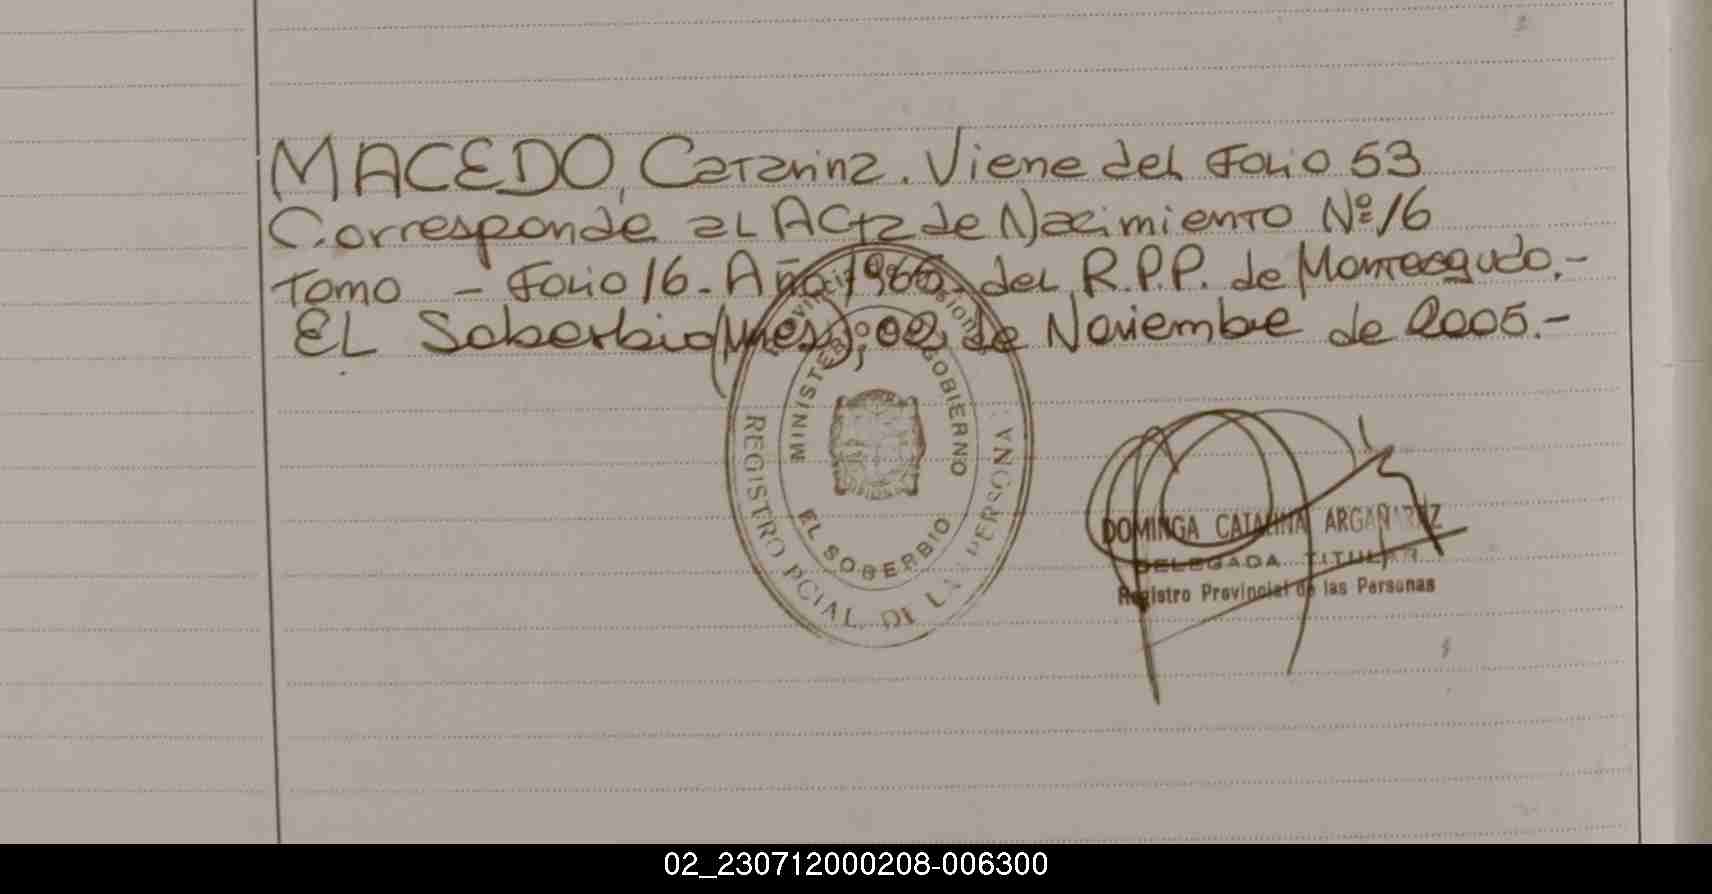 MACEDO, Catarina. Viene del Folio 53
Corresponde al Acta de Nacimiento Nº 16
Tomo - Folio 16. Año 1966. del R.P.P. de Monteagudo.-
El Soberbio (Mnes); 02 de Noviembre de 2005.-
MINISTERIO GOBIERNO
EL SOBERBIO
REGISTRO PCIAL. DE LA PERSONA
DOMINGA CATALINA ARGAÑARAZ
DELEGADA TITULAR
Registro Provincial de las Personas
02_230712000208-006300